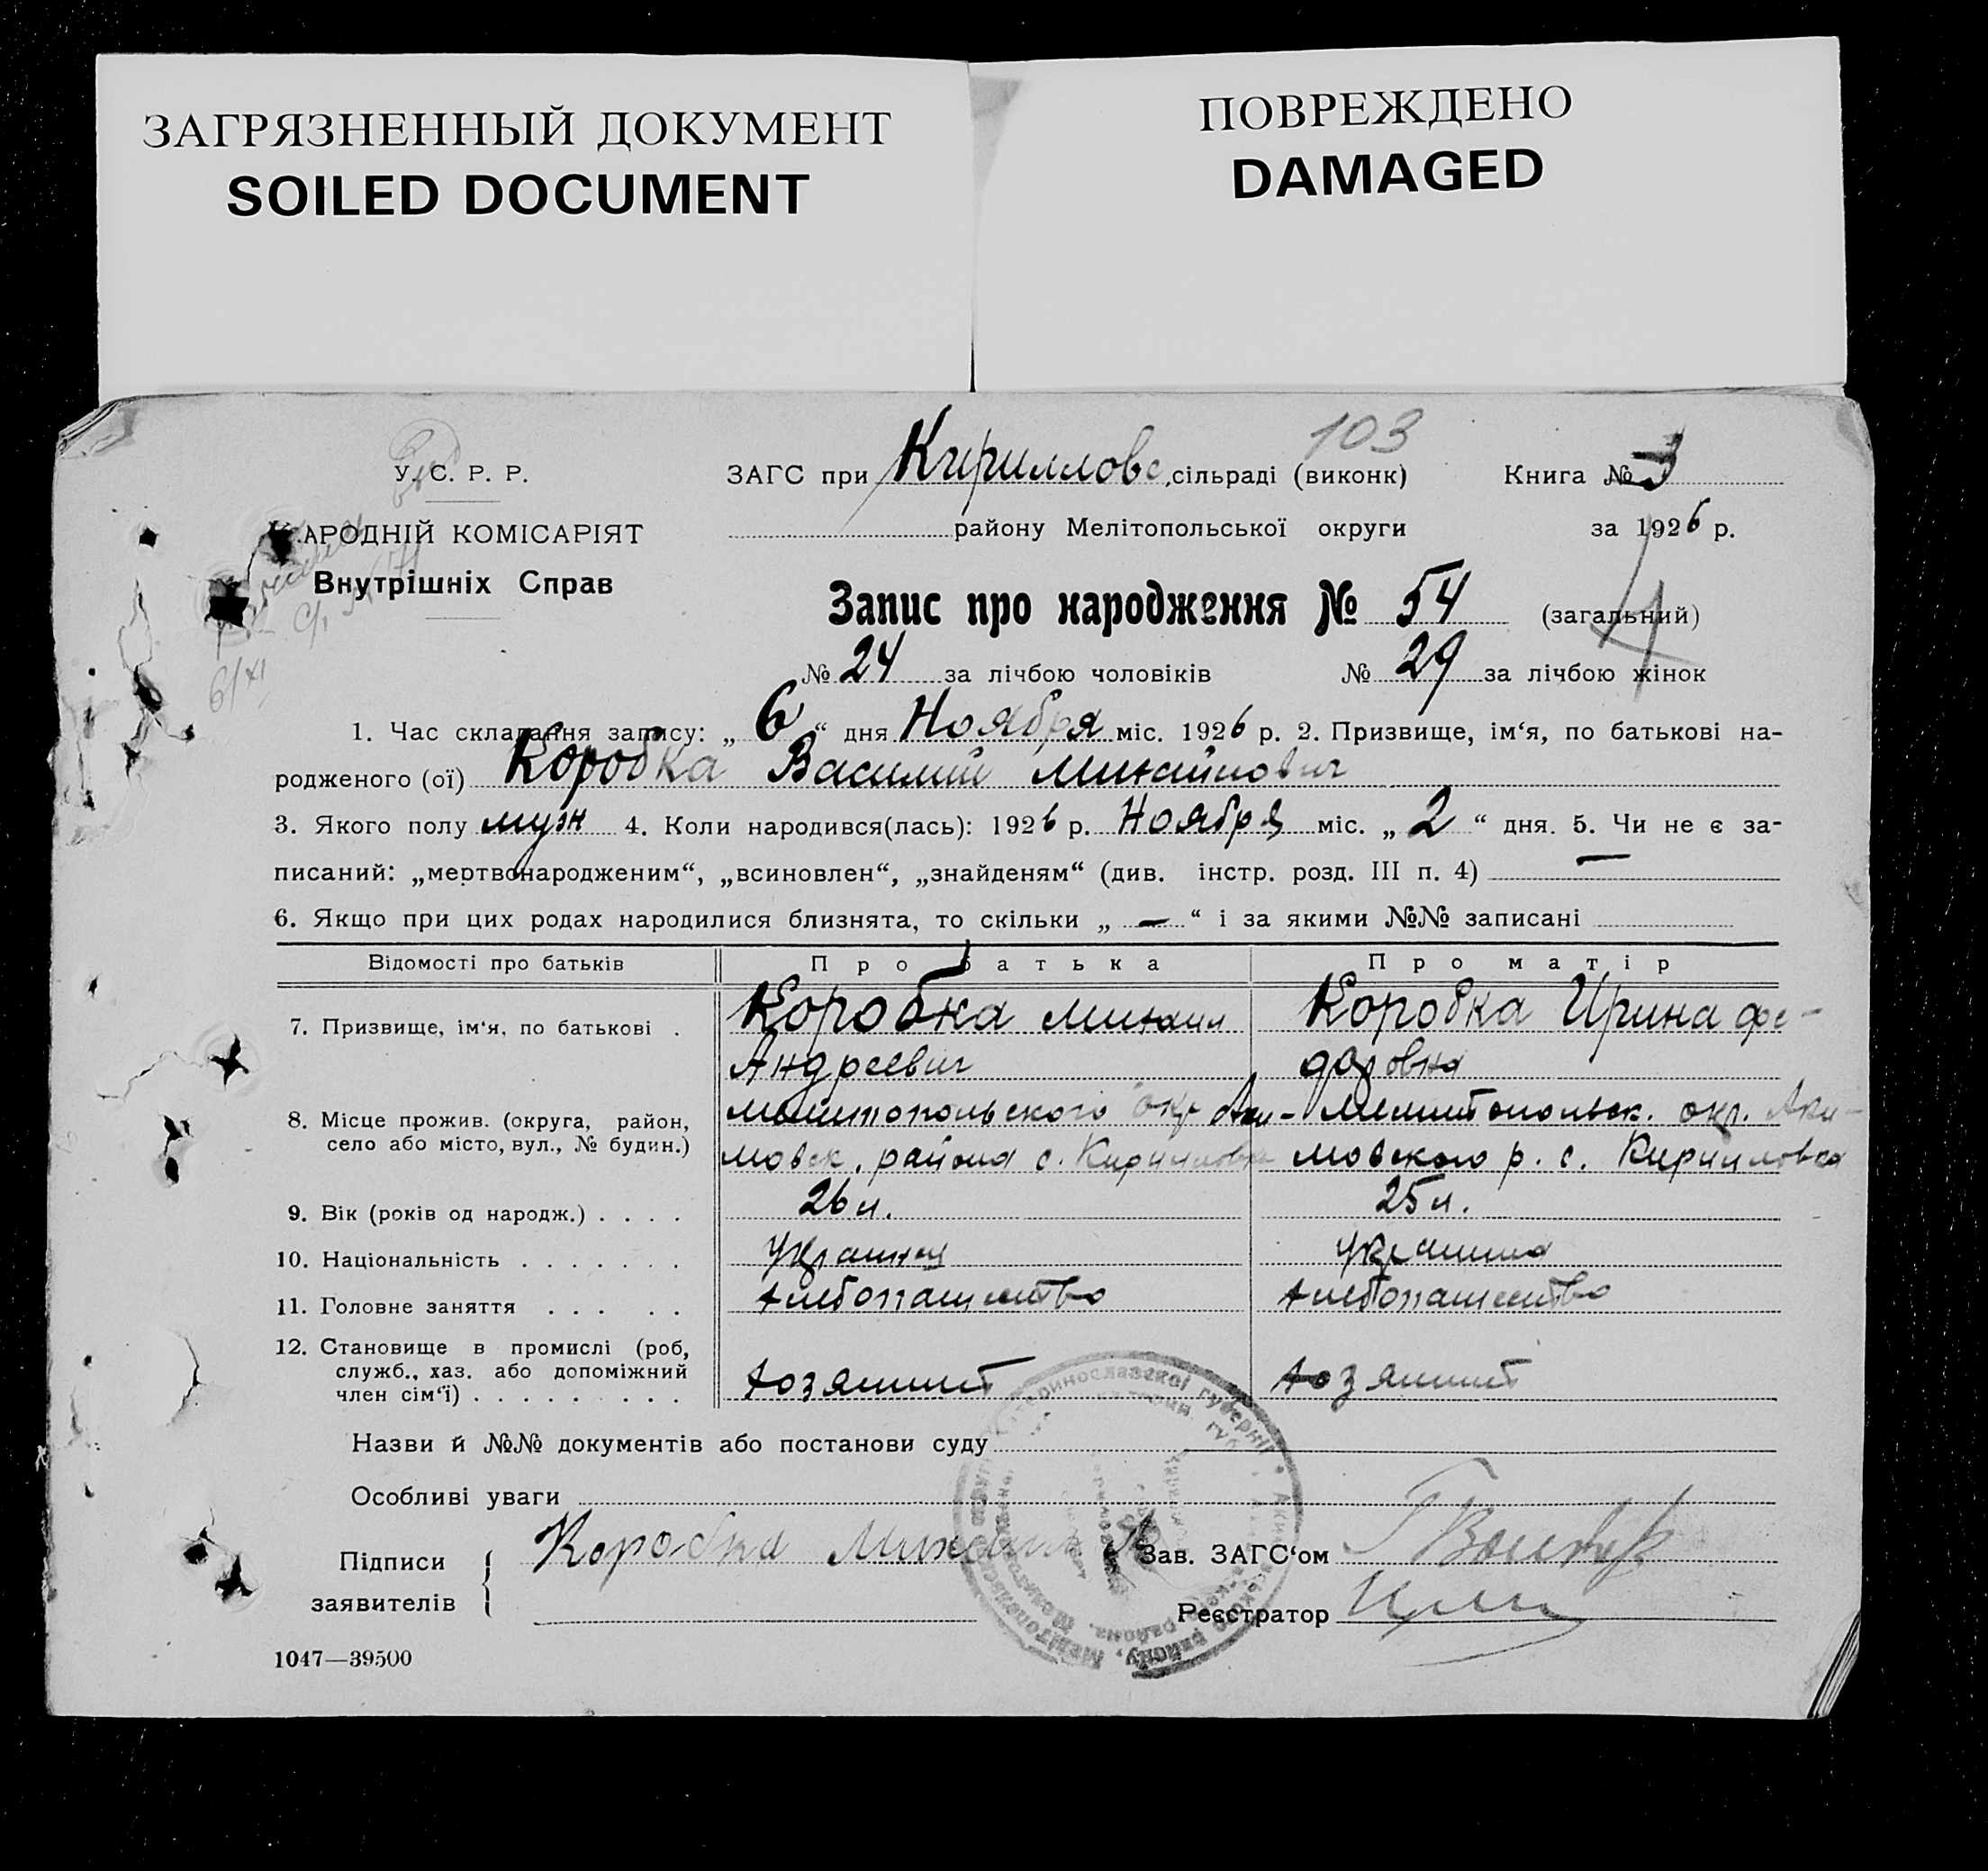 ЗАГРЯЗНЕННЫЙ ДОКУМЕНТ
SOILED DOCUMENT
ПОВРЕЖДЕНО
DAMAGED
103
У. С. Р. Р.
ЗАГС при Кирилловс. сільраді (виконк) Книга № 3
АРОДНІЙ КОМІСАРІЯТ
району Мелітопольської округи за 1926 р.
Внутрішніх Справ
Запис про народження № 54 (загальний)
4
№ 24 за лічбою чоловіків № 29 за лічбою жінок
6/XI
1. Час складання запису: „ 6 “ дня Ноября міс. 1926 р. 2. Призвище, ім‘я, по батькові на-
родженого (ої) Коробка Василий Михайлович
3. Якого полу муж 4. Коли народився(лась): 1926 р. Ноября міс. „ 2 “ дня. 5. Чи не є за-
писаний: „мертвонародженим“, „всиновлен“, „знайденям“ (див. інстр. розд. III п. 4) —
6. Якщо при цих родах народилися близнята, то скільки „ — “ і за якими №№ записані
Відомості про батьків Про батька Про матір
7. Призвище, ім‘я, по батькові . Коробка Михаил Коробка Ирина Фе-
Андреевич доровна
8. Місце прожив. (округа, район, Мелитопольского окр Аки- Мелитопольск. окр. Аки-
село або місто, вул., № будин.) мовск. района с. Кирилловка мовского р. с. Кирилловка
9. Вік (років од народж.) . . . . 26 л. 25 л.
10. Національність . . . . . . . Украинец Украинка
11. Головне заняття . . . . . хлебопашество хлебопашество
12. Становище в промислі (роб,
служб., хаз. або допоміжний
член сім‘ї) . . . . . . . . хозяинит хозяинит
Назви й №№ документів або постанови суду
Особливі уваги
Підписи
заявителів
Коробка Михаил А
Зав. ЗАГС‘ом
Реєстратор
1047—39500